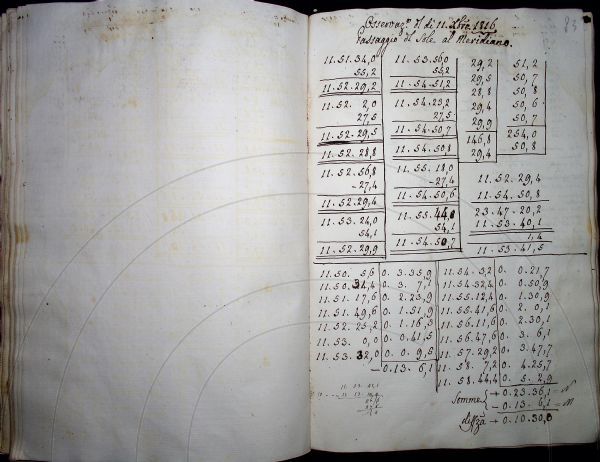 Osservaz.e del dì 11. Xbre 1816
Passaggio del Sole al Meridiano.
11.51.34,0
55,2
11.52.29,2
11.52. 2,0
27,5
11.52.29,5
11.52.28,8
11.52.56,8
-27,4
11.52.29,4
11.53.24,0
54,1
11.52.29,9
11.53.56,0
55,2
11.54.51,2
11.54.23,2
27,5
11.54.50,7
11.54.50,8
11.55.18,0
-27,4
11.54.50,6
11.55.44,8
54,1
11.54.50,7
29,2
29,5
28,8
29,4
29,9
146,8
29,4
51,2
50,7
50,8
50,6
50,7
254,0
50,8
11.52.29,4
11.54.50,8
23.47.20,2
11.53.40,1
1,4
11.53.41,5
11.50. 5,6 0.3.35,9
11.50.34,4 0.3. 7,1
11.51.17,6 0.2.23,9
11.51.49,6 0.1.51,9
11.52.25,2 0.1.16,3
11.53. 0,0 0.0.41,5
11.53.32,0 0.0. 9,5
-0.13. 6,1
11.54. 3,2 0. 0.21,7
11.54.32,4 0. 0.50,9
11.55.12,4 0. 1.30,9
11.55.41,6 0. 2. 0,1
11.56.11,6 0. 2.30,1
11.56.47,6 0. 3. 6,1
11.57.29,2 0. 3.47,7
11.58. 7,2 0. 4.25,7
11.58.44,4 0. 5. 2,9
Somme + 0.23.36,1 = N
- 0.13. 6,1 = M
diffza + 0.10.30,0